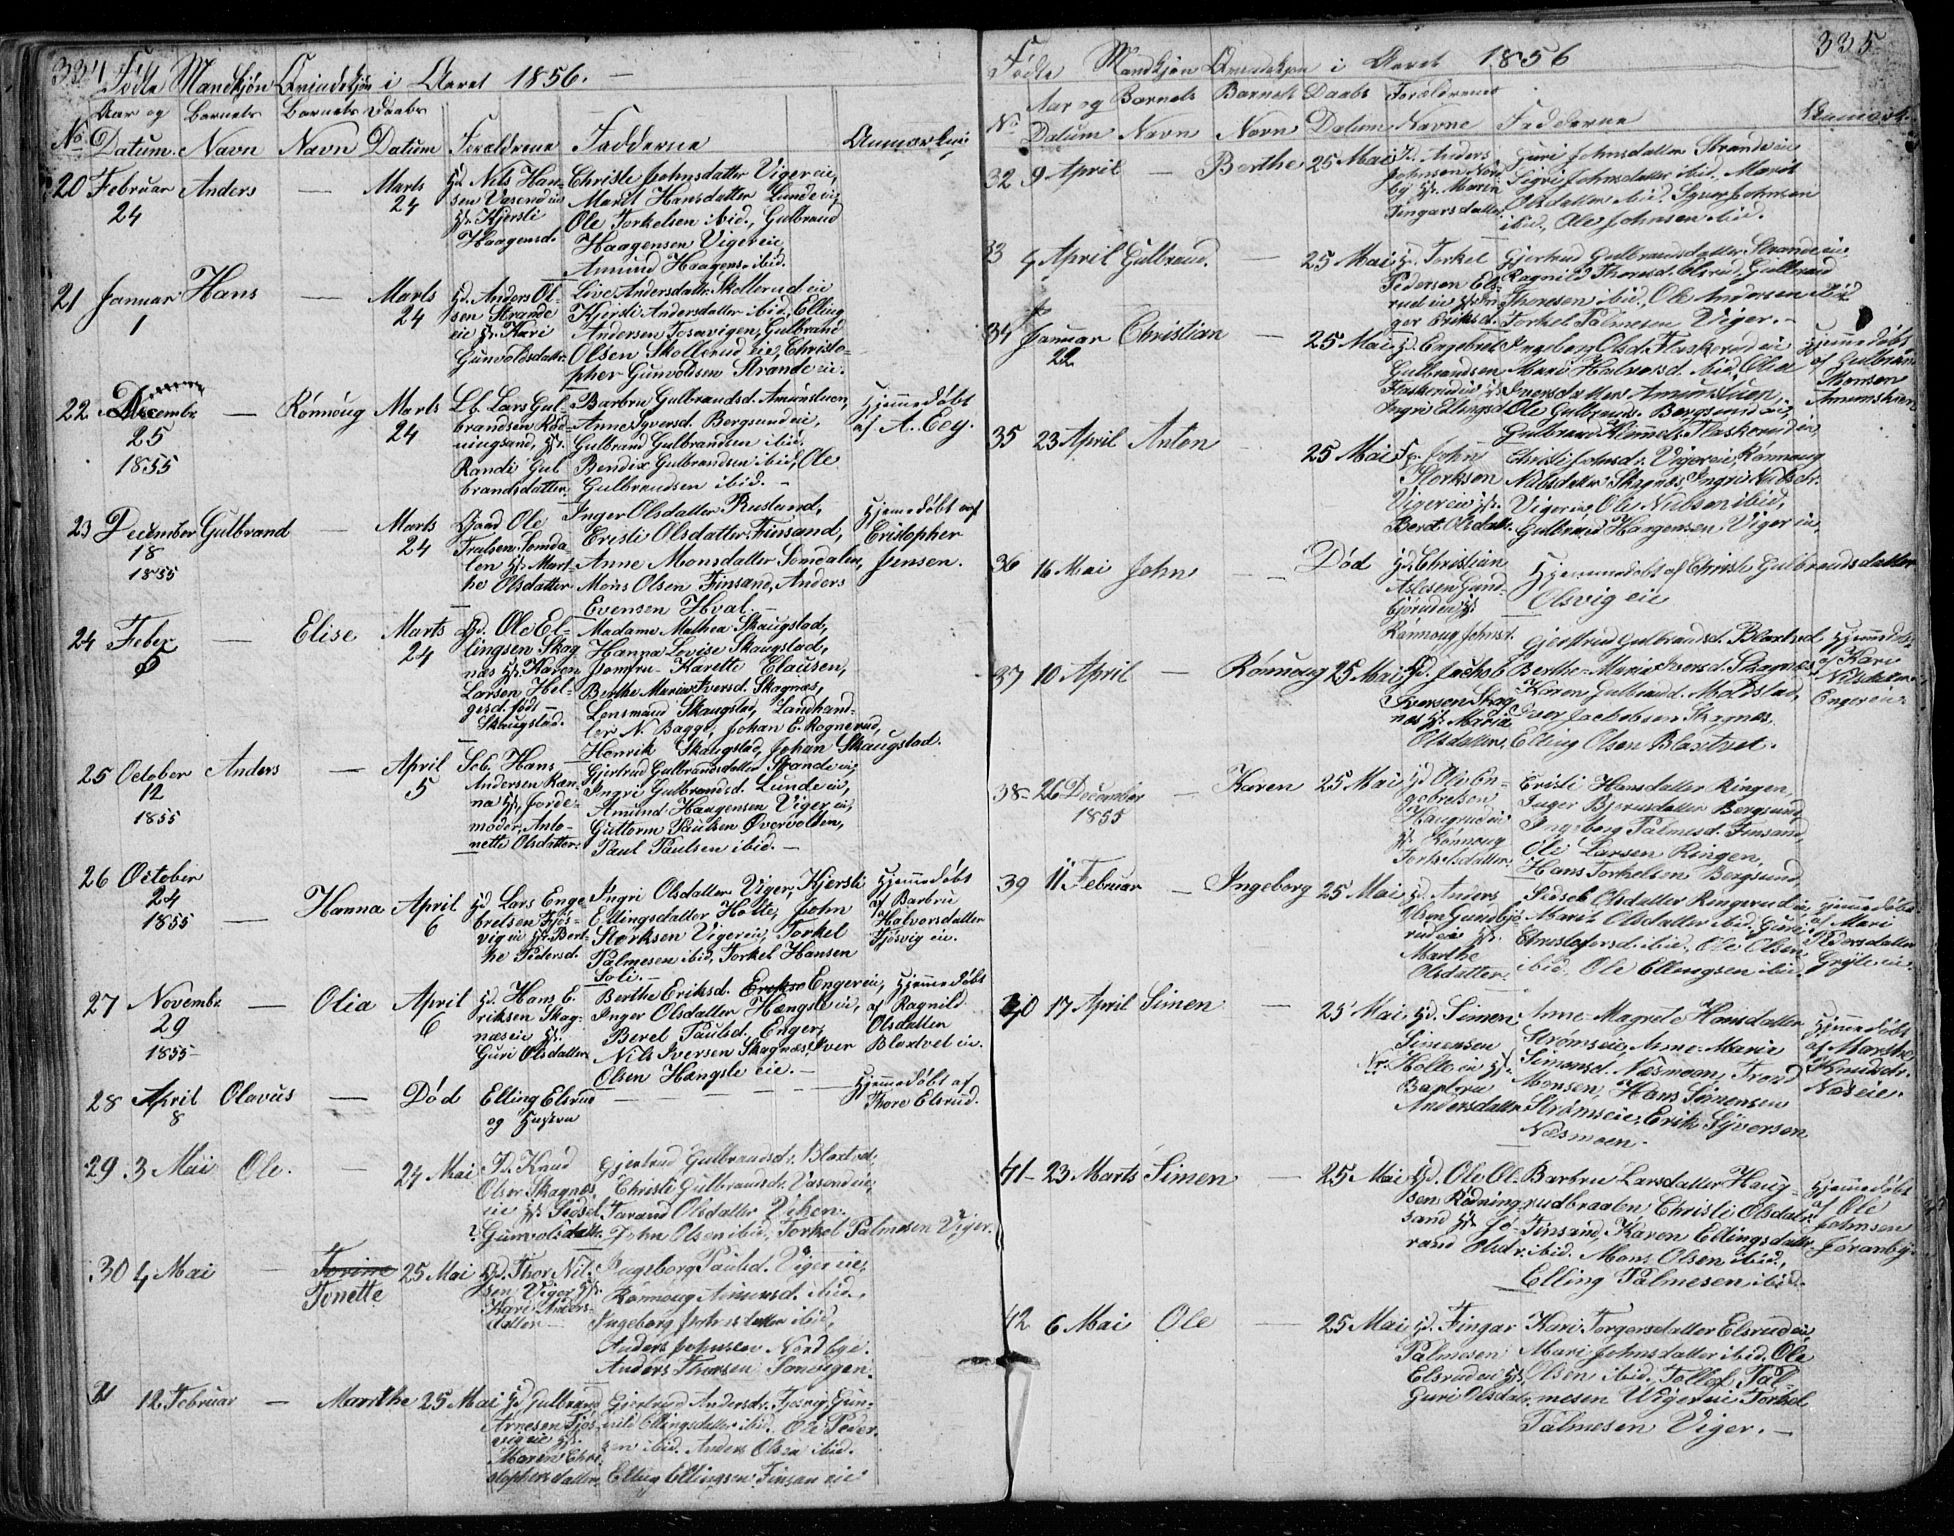 334
Fødte Mandkjøn Qvindekjøn i Aaret 1856.
Aar og Barnets Barnets Daabs
No Datum Navn Navn Datum Forældrene Fadderne Anmærkn
20 Februar 24 Anders — Marts 24
Nils Han-
sen Vasend eie
Kjersti
Haagensd.
Christi Johnsdatter Viger eie,
Marit Hansdatter Lunde eie,
Ole Torkelsen ibid., Gulbrand
Haagensen Viger eie,
Amund Haagens. ibid.
21 Januar 1 Hans — Marts 24
Anders Ol-
sen Strande
eie Kari
Gunvoldsdatter
Live Andersdatter Skollerud eie
Kjersti Andersdatter ibid, Elling
Andersen Tosevigen, Gulbrand
Olsen Skollerud eie, Christo-
pher Gunvoldsen Strande eie.
22 Decembr 25 1855 — Rønnoug Marts 24
Lars Gul-
brandsen Rød-
ningsand,
Randi Gul
brandsdatter.
Barbru Gulbrandsd. Amundsuen,
Anne Syversd. Bergsund eie,
Gulbrand Gulbrandsen ibid,
Bendix Gulbrandsen ibid, Ole
Gulbrandsen ibid. —
Hjemmedøbt
af A. Eey.
23 December 18 1855 Gulbrand — Marts 24
Gaard Ole
Trulsen Somda-
len Mart-
he Olsdatter
Inger Olsdatter Rustand,
Cristi Olsdatter Finsand,
Anne Monsdatter Somdalen,
Mons Olsen Finsand, Anders
Evensen Hval. —
Hjemmedøbt af
Cristopher
Jensen.
24 Febr 5 — Elise Marts 24
Ole El-
lingsen Skag
næs Karen
Larsen Hel-
gesd. født
Skaugstad.
Madame Mathea Skaugstad,
Hanna Lovise Skaugstad,
Jomfru Karette Clausen,
Berthe Maria Iversd. Skagnæs,
Lensmand Skaugstad, Landhand-
ler N. Bagge, Johan E. Rognerud,
Henrik Skaugstad, Johan Skaugstad.
25 October 12 1855 Anders — April 5
Hans
Andersen Ran-
na Jorde-
moder Anto-
nette Olsdatter.
Gjertrud Gulbrandsdatter Strande eie,
Ingri Gulbrandsd. Lunde eie,
Amund Haagensen Viger eie,
Guttorm Paulsen Øvervolden,
Paul Paulsen ibid. —
26 October 24 1855 — Hanna April 6
Lars Enge
bretsen Fjøs-
vig eie Bert-
he Pedersd.
Ingri Olsdatter Viger, Kjersti
Ellingsdatter Holte, John
Storksen Viger eie, Torkel
Palmesen ibid, Torkel Hansen
Soli. —
Hjemmedøbt
af Barbru
Halvorsdatter
Fjøsvig eie.
27 Novembr 29 1855 — Olia April 6
Hans E.
riksen Skag-
næs eie
Guri Olsdatter
Berthe Eriksd. Enger eie,
Inger Olsdatter Hængsle eie,
Berel Paulsd. Enger,
Nils Iversen Skagnæs, Iver
Olsen Hængsle eie. —
Hjemmedøbt
af Ragnild
Olsdatter
Bloxtvet eie.
28 April 8 Olavus — Død
Elling Elsrud
og Hustru
Hjemmedøbt af
Thore Elsrud.
29 3 Mai Ole. — 24 Mai
Knud
Olsen Skagnæs
eie Sidsel
Gunvolsdatter.
Gjertrud Gulbrandsdr. Bloxtvet,
Christi Gulbrandsdr. Vasend eie,
Tarand Olsdatter Viken.
John Olsen ibid, Torkel Palmesen Viger.
30 4 Mai — Torine Tonette 25 Mai
Thor Nil-
sen Viger
Kari Anders-
datter
Ingeborg Paulsd. Viger eie,
Rønnoug Amundsd. ibid.,
Ingeborg Johnsdatter ibid,
Anders Johnsen Nordbye.
Anders Thorsen Somvigen.
31 12 Februar — Marthe 25 Mai
Gulbrand
Arnesen Fjøs-
vig eie
Maren Chri-
stophersdatter
Gjertrud Andersdr. Fjøsvig, Gun-
nild Ellingsdatter ibid. Ole Peder
sen ibid. Anders Olsen ibid.
Elling Ellingsen Finsan eie
335
Fødte Mandkjøn Qvindekjøn i Aaret 1856
Aar og Barnets Barnets Daabs Forældrenes
No Datum Navn Navn Datum Navne Fadderne
32 9 April — Berthe 25 Mai
Anders
Johnsen Nord
by Maren
Fingarsdatter
Guri Johnsdatter Strande eie
Sigri Johnsdatter ibid. Marit
Olsdatter ibid. Syver Johnsen
ibid, Ole Johnsen ibid.
33 4 April Gulbrand. — 25 Mai
Torkel
Pedersen Els-
rud eie In
ger Eriksd.
Gjertrud Gulbrandsdatter Strande eie.
Ragnild Thoresd. Elsrud, Gulbrand
Thoresen ibid, Ole Andersen ibid
Torkel Palmesen Viger. —
34 Januar 22 Christian — 25 Mai
Engebret
Gulbrandsen
Flaskerud eie
Ingri Ellingsd.
Ingeborg Olsd. Flaskerud eie
Mari Halvorsd. ibid, Olia
Iversdatter Amundsuen,
Ole Gulbrands. Bergsund eie,
Gulbrand Flaskerud eie,
Hjemmedøbt
af Gulbrand
35 23 April Anton 25 Mai
John
Storksen
Viger eie
Berit Olsdatter
Christi Johnsdr. Viger eie, Rønnoug
Nilsdatter Skagnæs, Ingri Nilsdr.
Viger eie, Ole Nilsen ibid,
Gulbrand Haagensen Viger eie.
36 16 Mai John — Død
Christian
Aslesen Gund-
bjørud eie
Rønnoug Johnsd.
Hjemmedøbt af Christi Gulbrandsdatter
Olsvig eie
37 10 April — Rønnoug 25 Mai
Jachob
Iversen Skag
næs Maria
Olsdatter,
Gjertrud Gulbrandsd. Bloxtved
Berthe Maria Iversd. Skagnæs
Karen Gulbrand. Moldstad,
Iver Jacobsen Skagnæs.
Elling Olsen Bloxtvet.
Hjemmedøbt
af Kari
Nilsdatter
Enger eie.
38 26 December 1855 — Karen 25 Mai
Ole En-
gebretsen
Haugrud eie
Rønnoug
Torkelsdatter,
Cristi Hansdatter Ringen,
Inger Bjørnsdatter Bergsund,
Ingeborg Palmesd. Finsand,
Ole Larsen Ringen,
Hans Torkelsen Bergsund,
39 11 Februar — Ingeborg 25 Mai
Anders
Olsen Gundbjø-
rud eie
Marthe
Olsdatter
Sidsel Olsdatter Ringerud eie
Marit Olsdatter ibid. Guri
Christofersd. ibid. Ole Olsen
ibid. Ole Ellingsen ibid.
Hjemmedøbt
af Mari
Pedersdatter
Gryte eie.
40 17 April Simen — 25 Mai
Simen
Simensen
Holte eie
Barbru
Andersdatter
Anne Magrete Hansdatter
Strøms eie, Anne Maria
Simonsd. Næsmoen, Trond
Monsen, Hans Simensen
Strøms eie, Erik Syversen
Næsmoen.
Hjemmedøbt
af Marthe
Knudsdr.
Næs eie.
41 23 Marts Simen — 25 Mai
Ole Ol-
sen Rødning-
sand Jø-
rand Olsdr.
Barbru Larsdatter Haug-
rudbraaten, Christi Olsdatr.
Finsand, Karen Ellingsdatter
ibid. Mons Olsen ibid,
Elling Palmesen ibid.
Hjemmedøbt
af Ole
Johnsen
Jøranby.
42 6 Mai Ole — 25 Mai
Fingar
Palmesen
Elsrud eie
Guri Olsdatr.
Kari Torgersdatter Elsrud eie
Mari Johnsdatter ibid, Ole
Olsen ibid, Tollef Pal
mesen Viger eie Torkel
Palmesen Viger. —